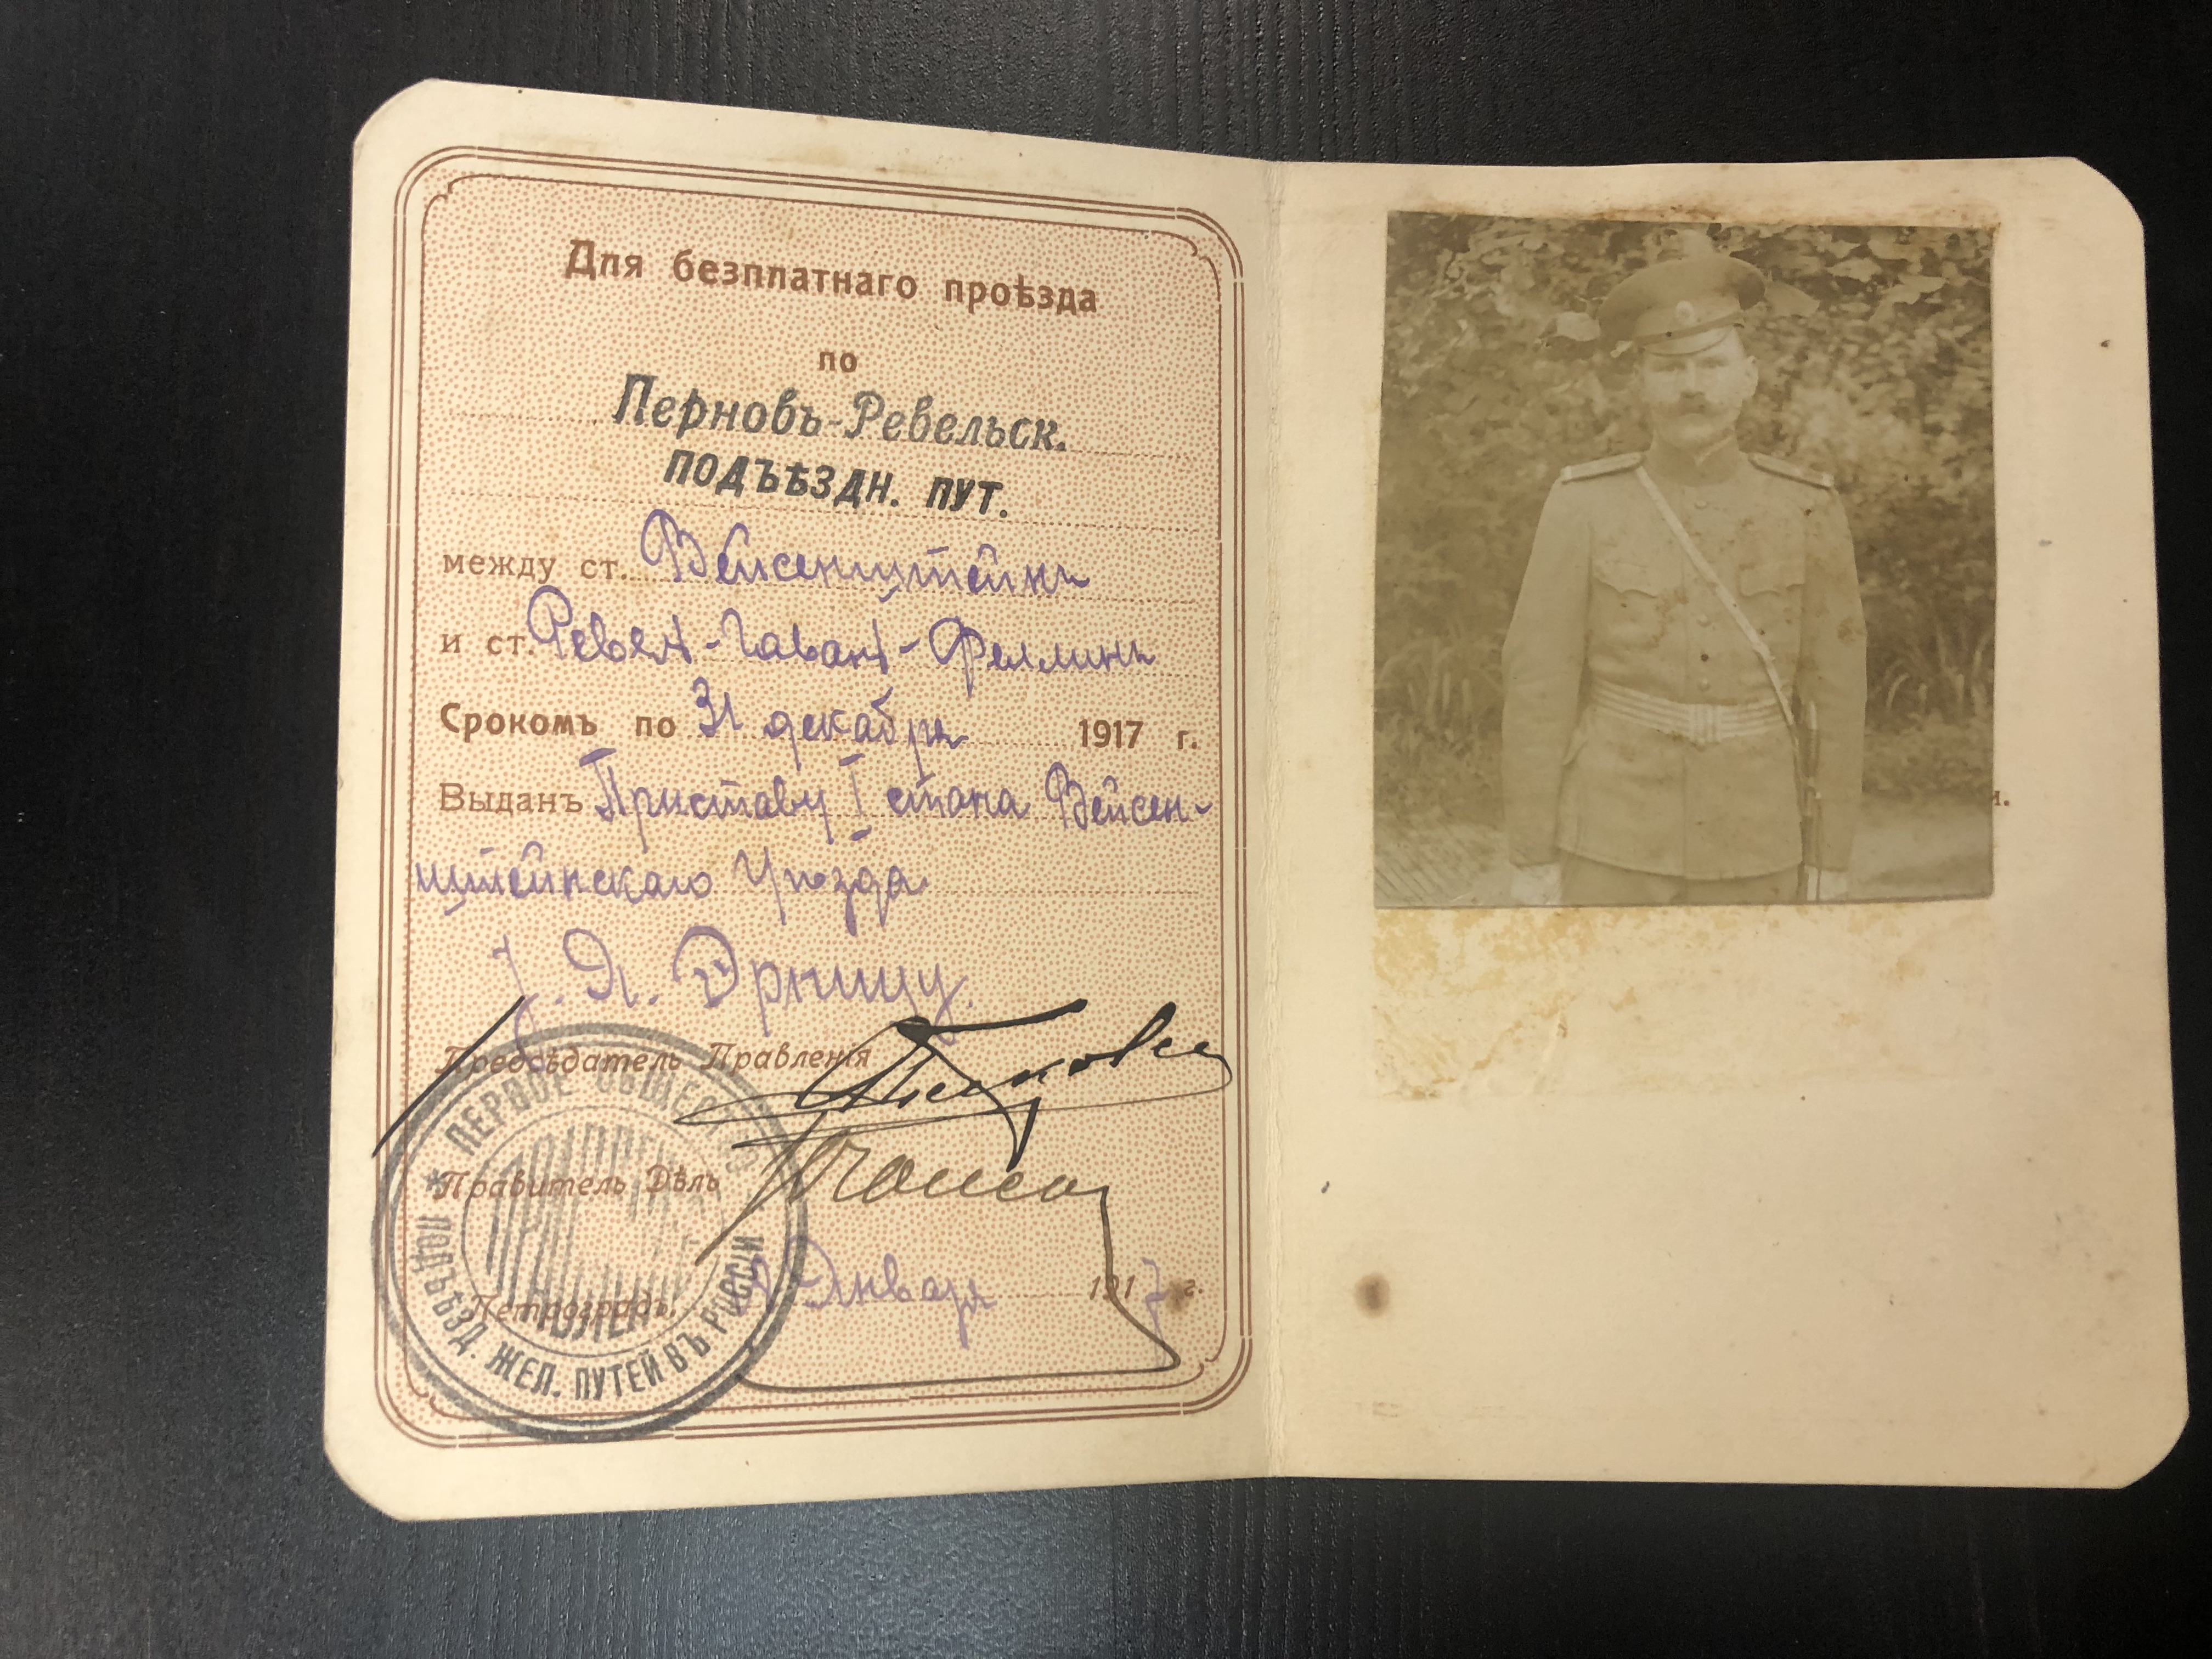 Для безплатнаго проѣзда
по
Перновъ-Ревельск.
ПОДЪѢЗДН. ПУТ.
между ст. Вейсенштейнъ
и ст. Ревель-Гавань-Феллинъ
Срокомъ по 31 декабря 1917 г.
Выданъ Приставу I стана Вейсен-
штейнскаго Уѣзда
Я.
Предсѣдатель Правленія
Правитель Дѣлъ
Петроградъ. Января 1917 г.
ПЕРВОЕ ОБЩЕСТВО
ПОДЪѢЗД. ЖЕЛ. ПУТЕЙ ВЪ РОССІИ